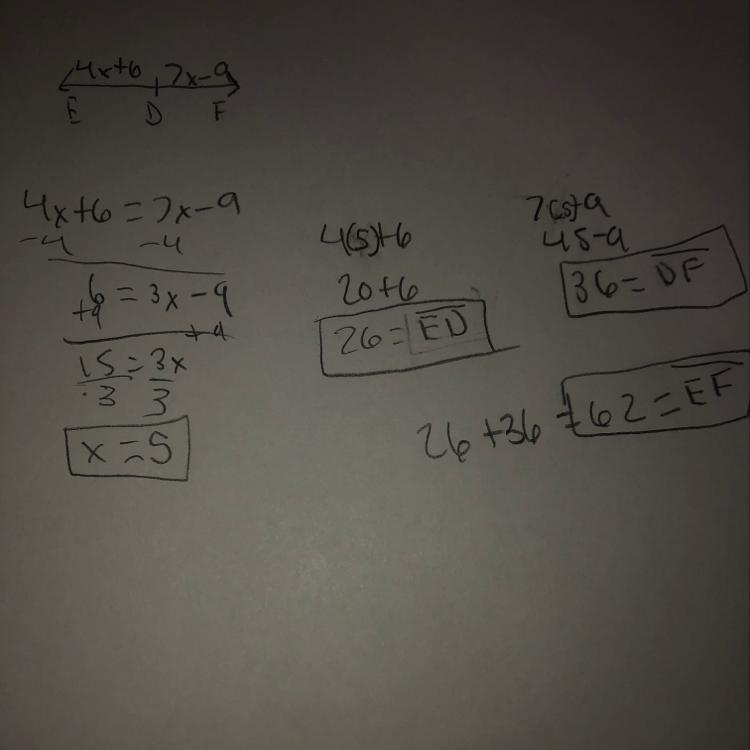 4x+6 7x-9
E D F
4x+6 = 7x-9
-4 -4
6 = 3x - 9
+9 +9
15 = 3x
3 3
x = 5
4(5)+6
20+6
26 = ED
7(5)-9
45-9
36 = DF
26 + 36 = 62 = EF